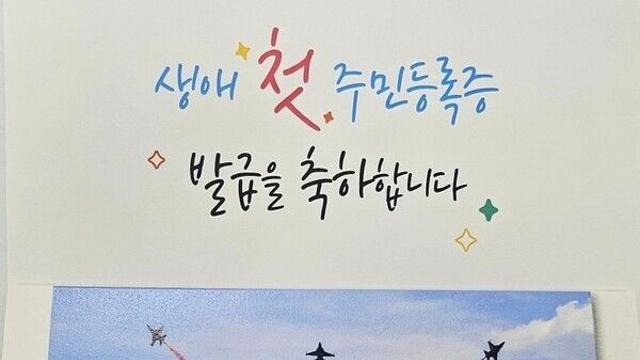 생애 첫 주민등록증
발급을 축하합니다